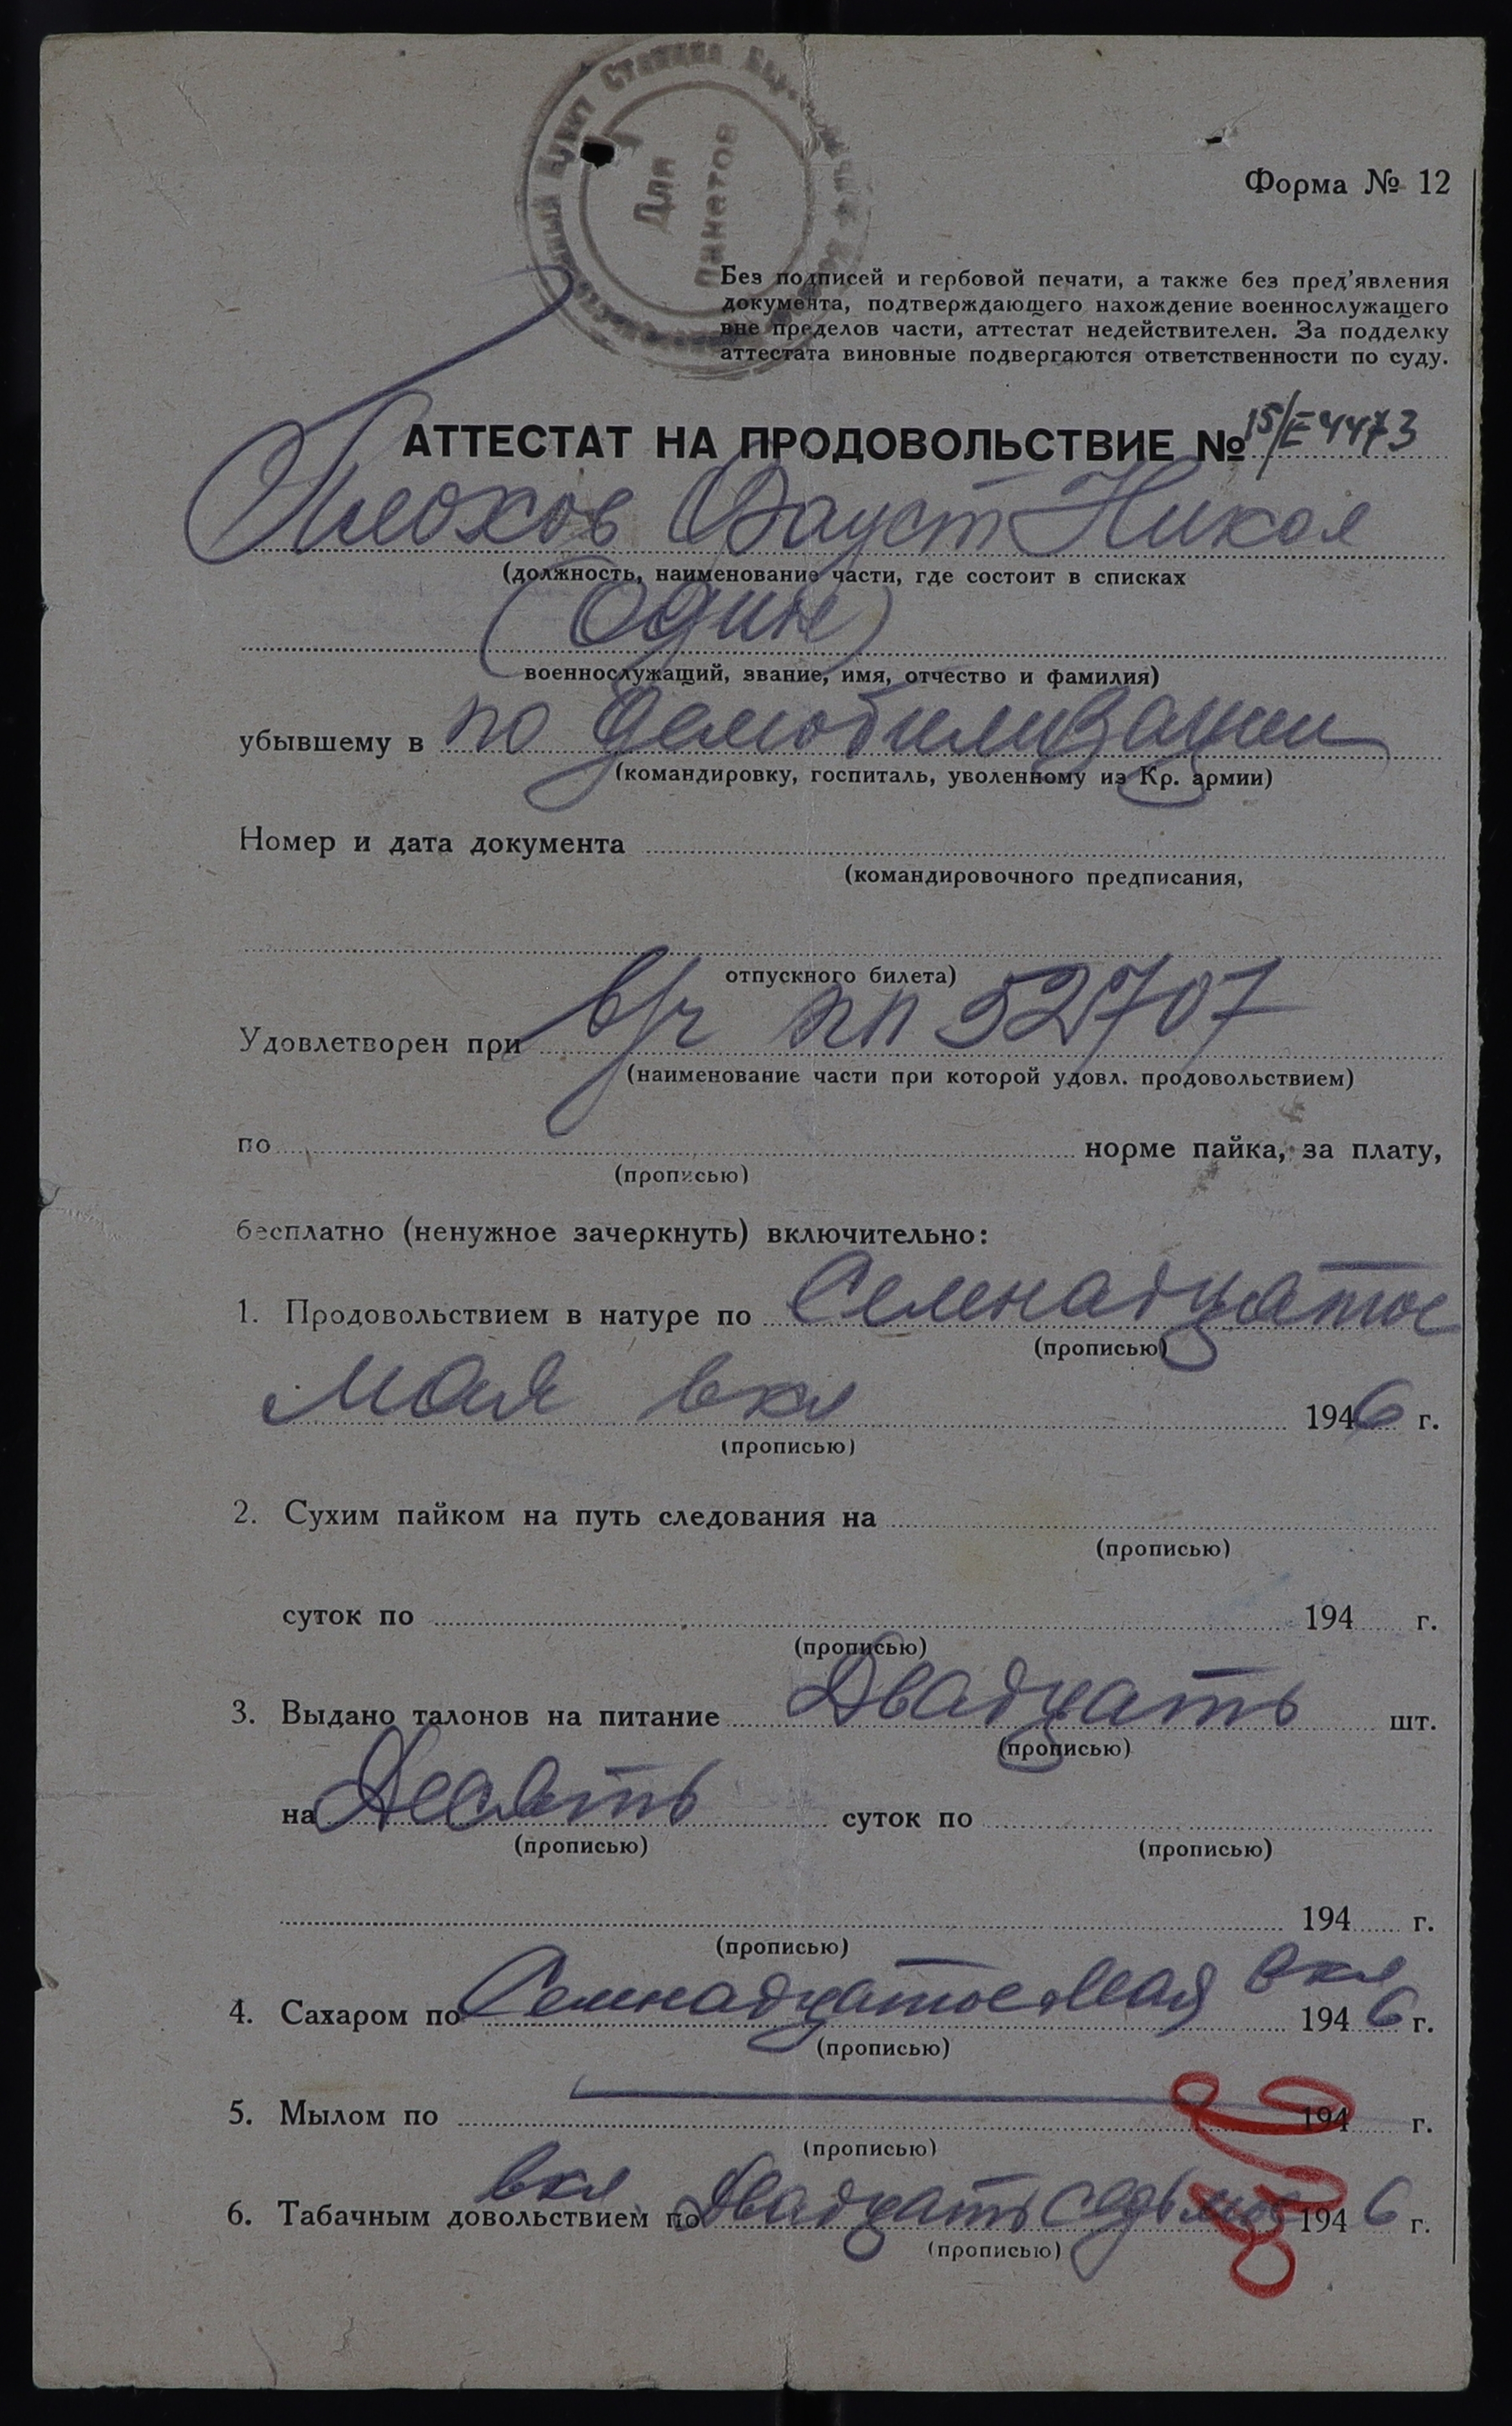 Для
пакетов
Форма № 12
Без подписей и гербовой печати, а также без пред'явления
документа, подтверждающего нахождение военнослужащего
вне пределов части, аттестат недействителен. За подделку
аттестата виновные подвергаются ответственности по суду.
АТТЕСТАТ НА ПРОДОВОЛЬСТВИЕ № 15/E4473
Плохов Фауст Никол
(должность, наименование части, где состоит в списках
(один)
военнослужащий, звание, имя, отчество и фамилия)
убывшему в по демобилизации
(командировку, госпиталь, уволенному из Кр. армии)
Номер и дата документа
(командировочного предписания,
отпускного билета)
Удовлетворен при в/ч пп 52707
(наименование части при которой удовл. продовольствием)
по норме пайка, за плату,
(прописью)
бесплатно (ненужное зачеркнуть) включительно:
1. Продовольствием в натуре по Семнадцатое
(прописью)
мая вкл 1946 г.
(прописью)
2. Сухим пайком на путь следования на
(прописью)
суток по 194 г.
(прописью)
3. Выдано талонов на питание Двадцать шт.
(прописью)
на Десять суток по
(прописью) (прописью)
194 г.
(прописью)
4. Сахаром по Семнадцатое мая вкл 1946 г.
(прописью)
5. Мылом по 194 г.
(прописью)
вкл
6. Табачным довольствием по Двадцать седьмое 1946 г.
(прописью)